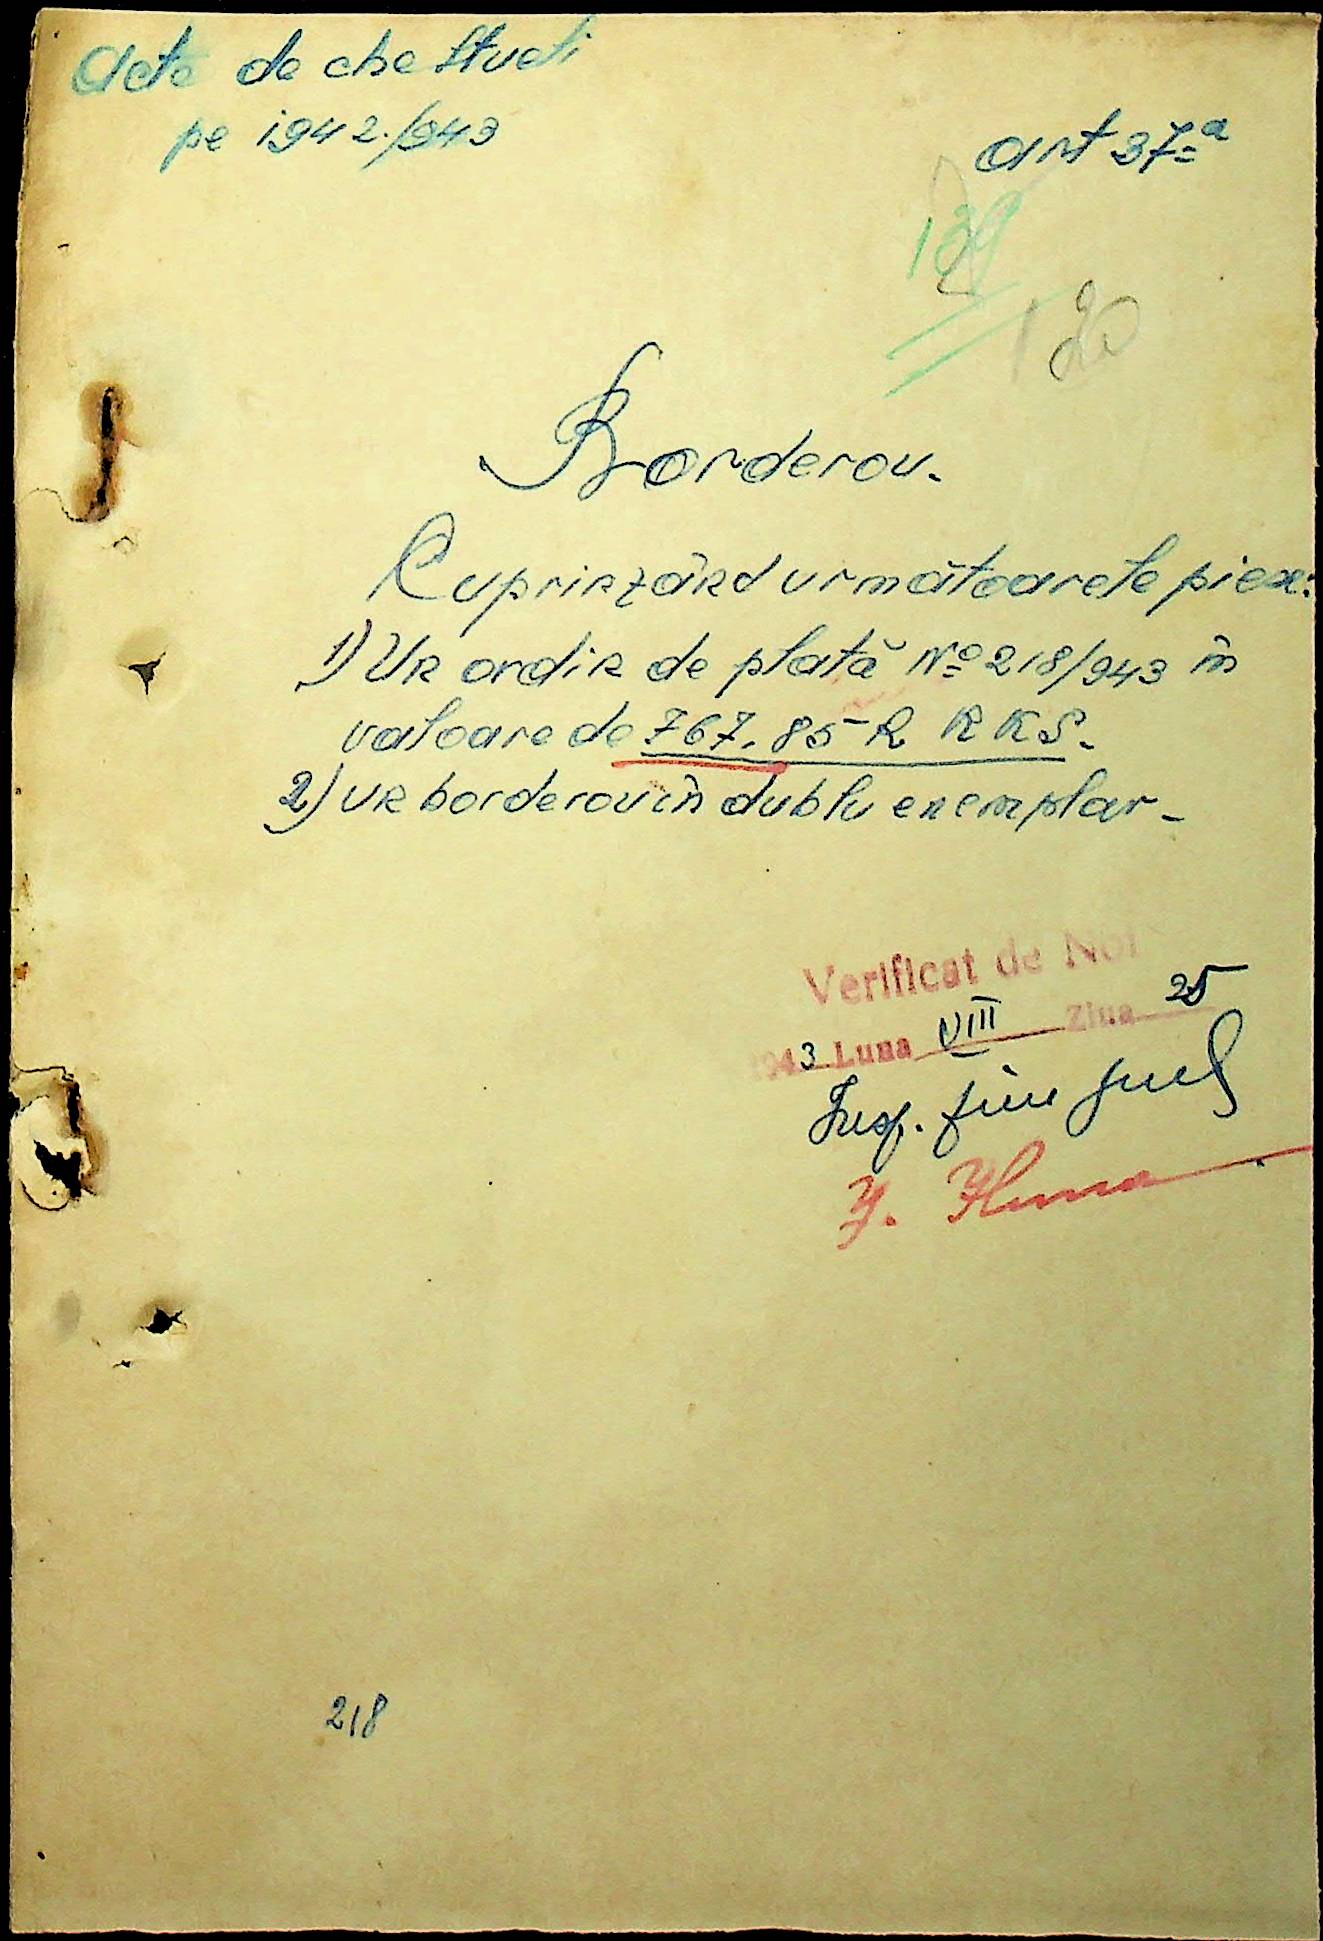 Acte de cheltueli
pe 1942/943
art 37-a
139
120
Borderou.
Cuprinzând următoarele piese:
1) Un ordin de plată No 218/943 în
valoare de 767.85 R K K S.
2) un borderou în dublu exemplar -
Verificat de Noi
1943 Luna VIII Ziua 25
Insp. fin
218